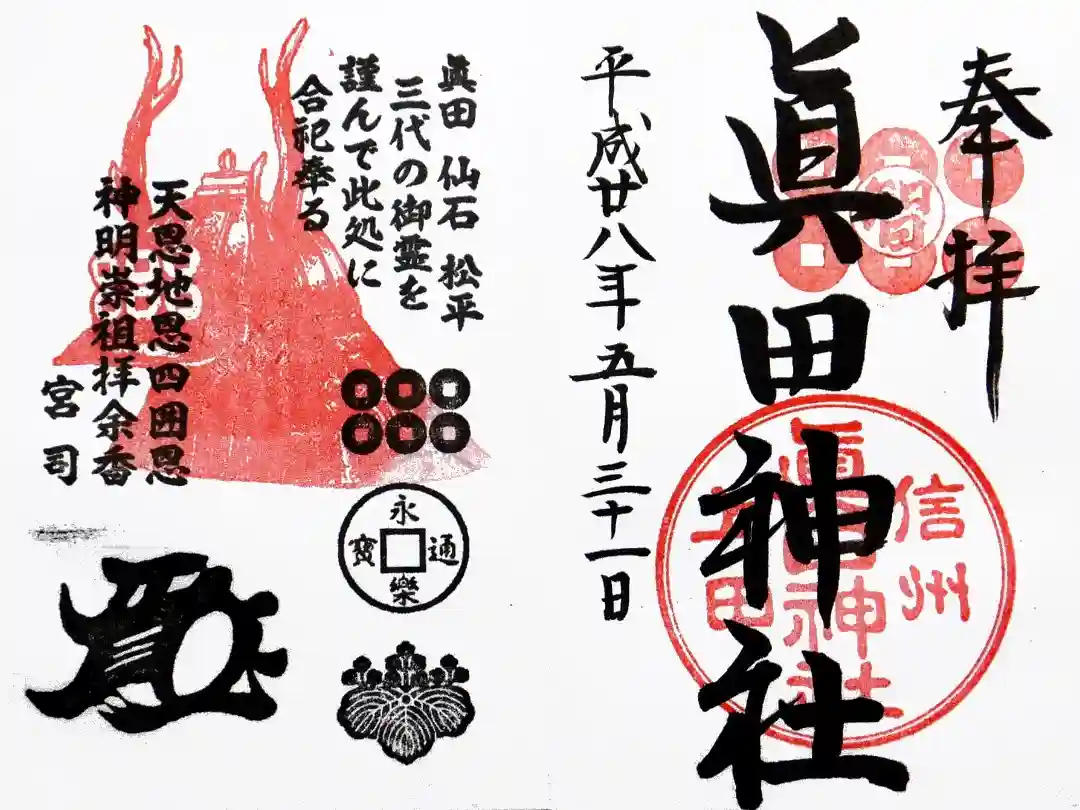 奉拝
眞田神社
信州
眞田神社
上田
平成廿八年五月三十一日
眞田 仙石 松平
三代の御霊を
謹んで此処に
合祀奉る
天恩地恩四囲恩
神明崇祖拝余香
宮司
永樂通寶